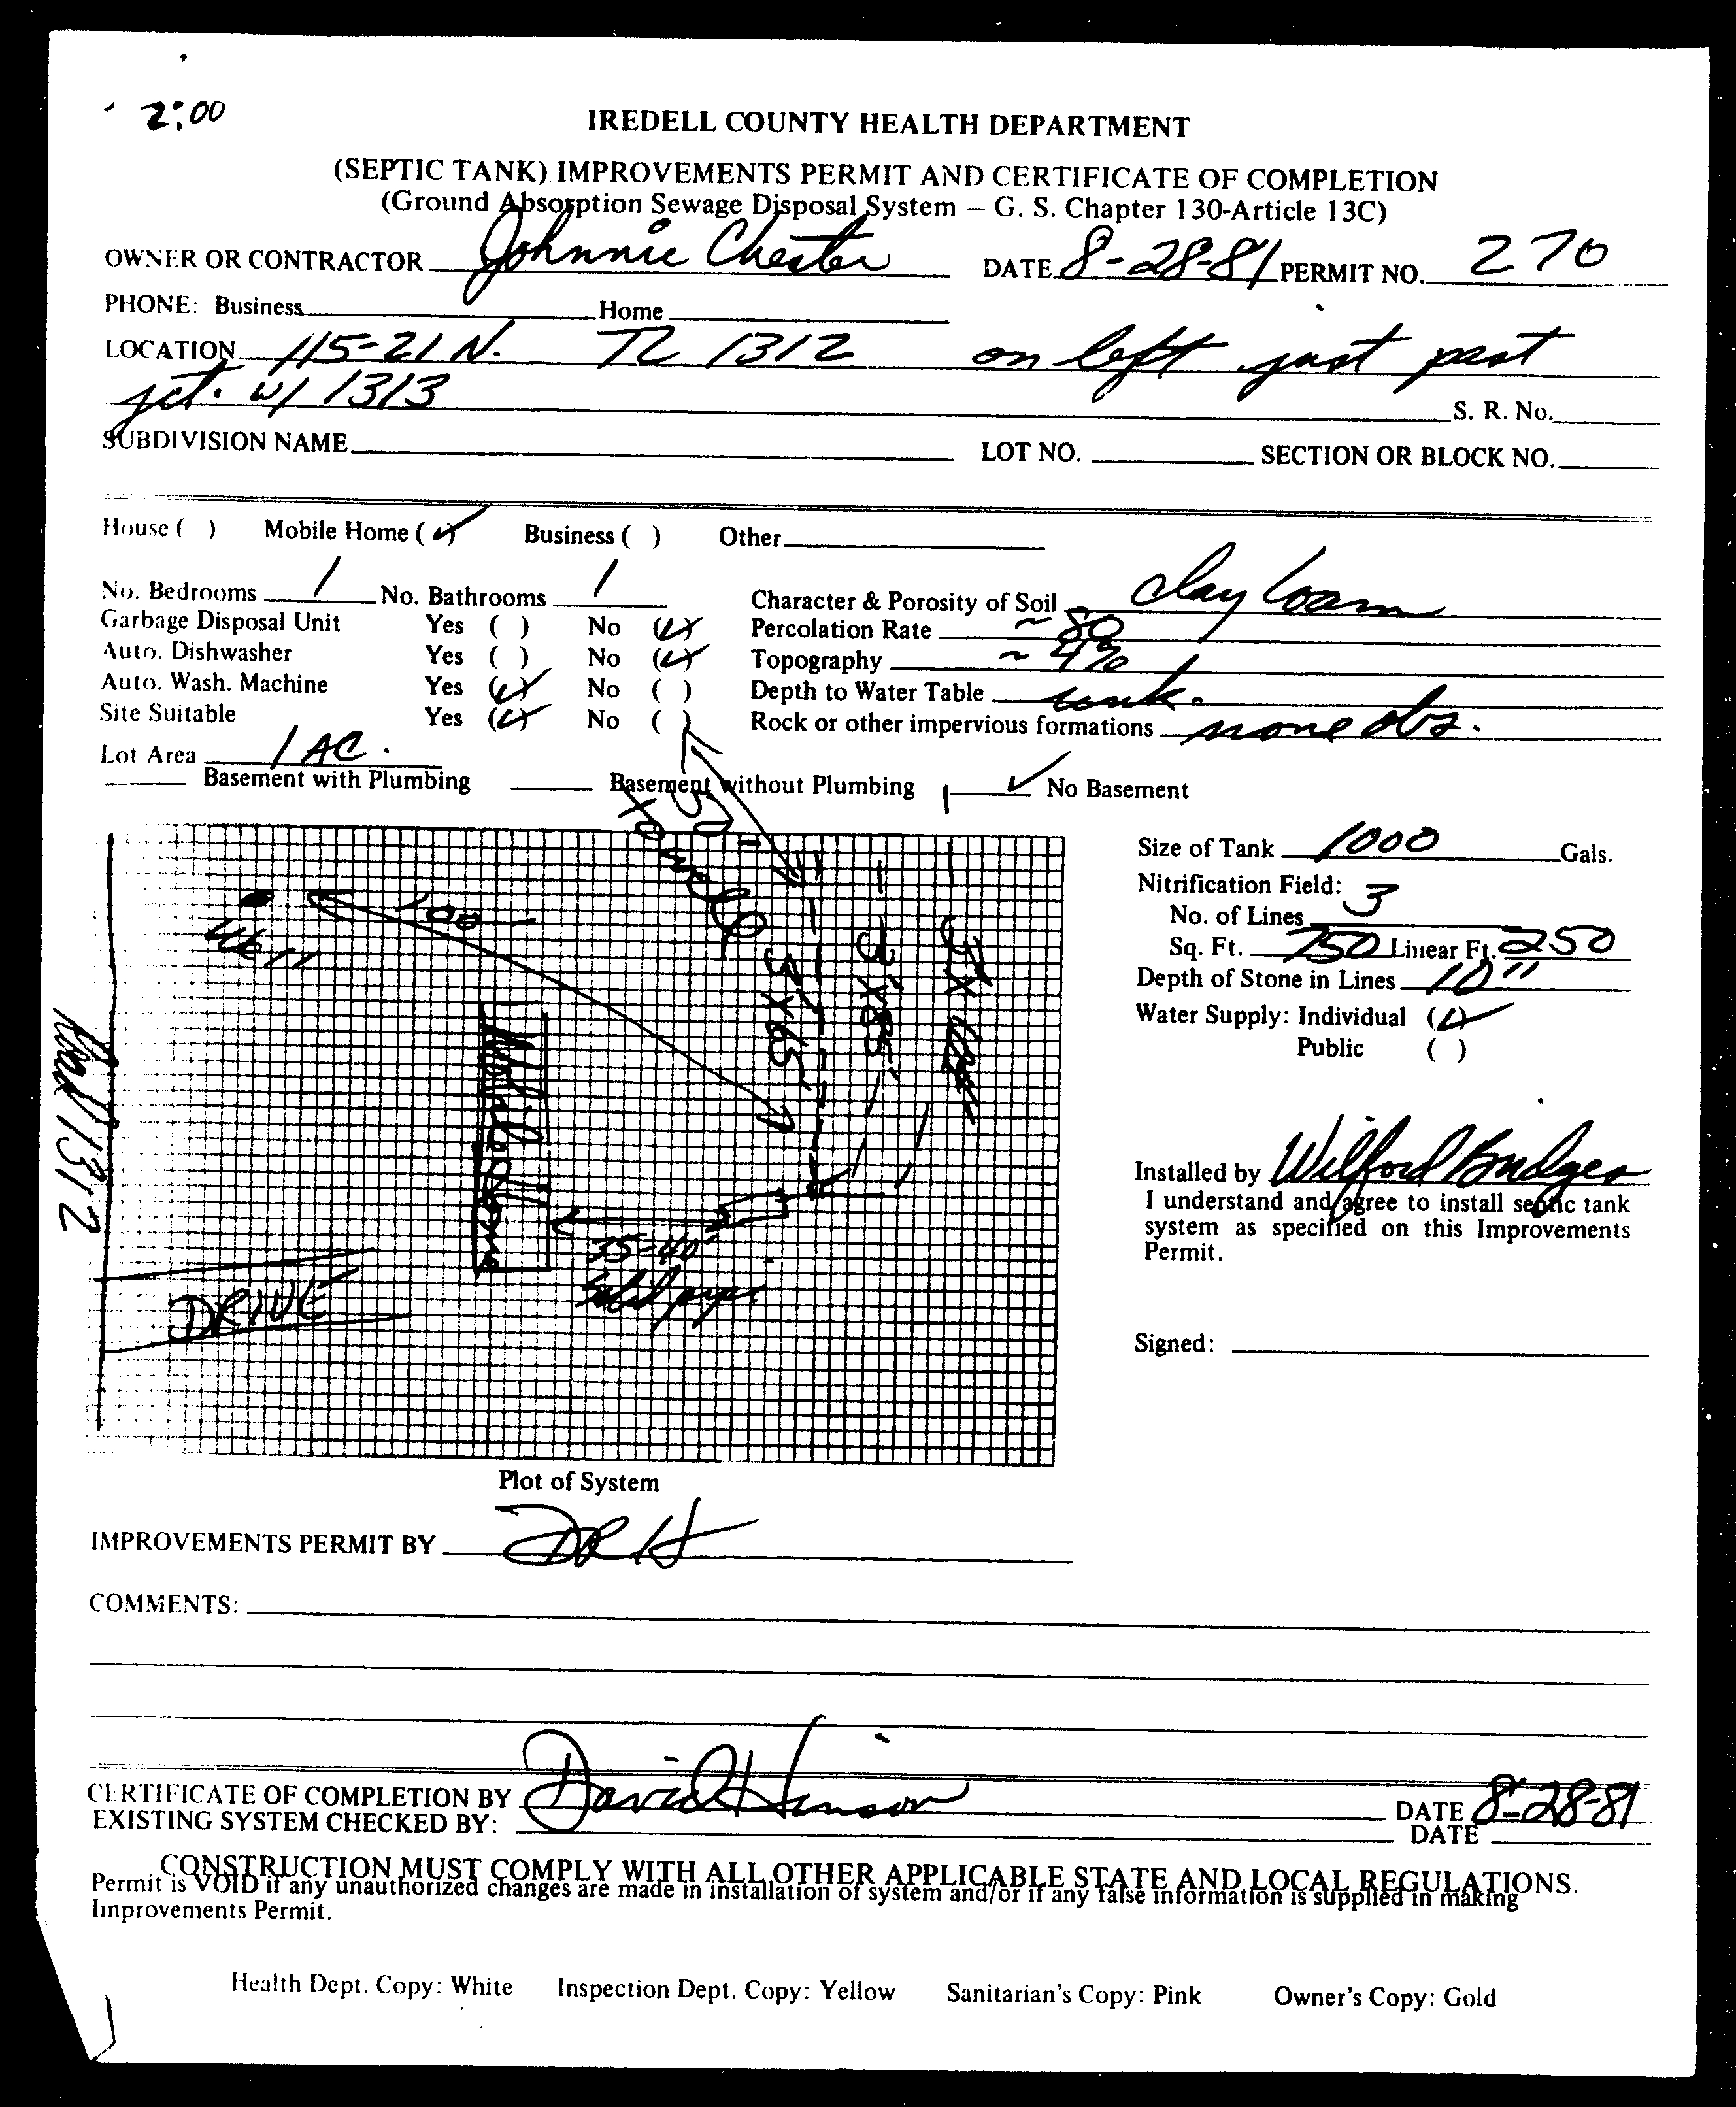 2:00
IREDELL COUNTY HEALTH DEPARTMENT
(SEPTIC TANK) IMPROVEMENTS PERMIT AND CERTIFICATE OF COMPLETION
(Ground Absorption Sewage Disposal System – G. S. Chapter 130-Article 13C)
OWNER OR CONTRACTOR Johnnie Chester DATE 8-28-81 PERMIT NO. 270
PHONE: Business Home
LOCATION 115-21 N. TL 1312 on left just past
jct. w/ 1313 S. R. No.
SUBDIVISION NAME LOT NO. SECTION OR BLOCK NO.
House ( ) Mobile Home (✓) Business ( ) Other
No. Bedrooms 1 No. Bathrooms 1 Character & Porosity of Soil clay loam
Garbage Disposal Unit Yes ( ) No (✓) Percolation Rate ~ 80
Auto. Dishwasher Yes ( ) No (✓) Topography ~ 4%
Auto. Wash. Machine Yes (✓) No ( ) Depth to Water Table unk.
Site Suitable Yes (✓) No ( ) Rock or other impervious formations none obs.
Lot Area 1 AC.
Basement with Plumbing Basement without Plumbing ✓ No Basement
50'
to well
Well
100'
3'X65'
3'X85'
Mobile Home
35-40'
solid pipe
DRIVE
Rd 1312
Size of Tank 1000 Gals.
Nitrification Field:
No. of Lines 3
Sq. Ft. 750 Linear Ft. 250
Depth of Stone in Lines 10"
Water Supply: Individual (✓)
Public ( )
Installed by Wilford Bridges
I understand and agree to install septic tank
system as specified on this Improvements
Permit.
Signed:
Plot of System
IMPROVEMENTS PERMIT BY DRH
COMMENTS:
CERTIFICATE OF COMPLETION BY David Hinson DATE 8-28-81
EXISTING SYSTEM CHECKED BY: DATE
CONSTRUCTION MUST COMPLY WITH ALL OTHER APPLICABLE STATE AND LOCAL REGULATIONS.
Permit is VOID if any unauthorized changes are made in installation of system and/or if any false information is supplied in making
Improvements Permit.
Health Dept. Copy: White Inspection Dept. Copy: Yellow Sanitarian's Copy: Pink Owner's Copy: Gold